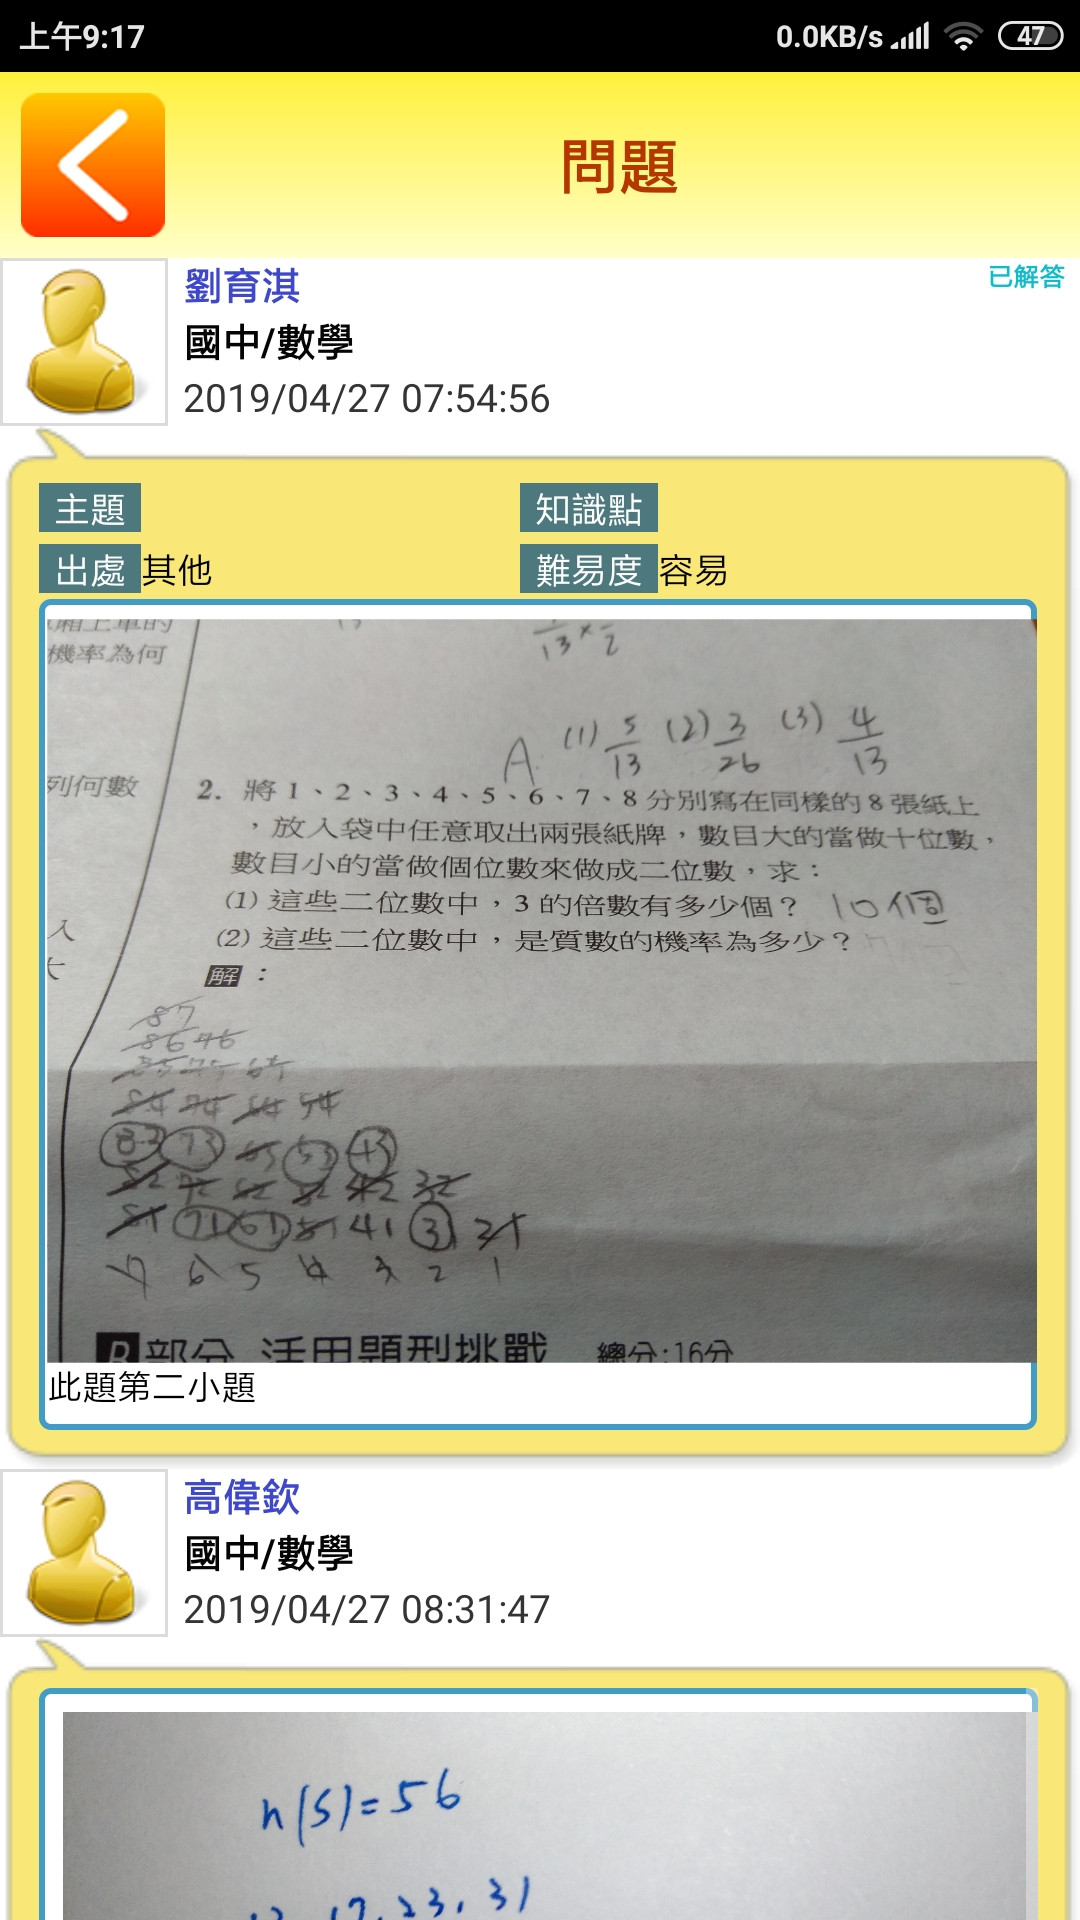 上午9:17
0.0KB/s
47
問題
劉育淇
已解答
國中/數學
2019/04/27 07:54:56
主題
知識點
出處 其他
難易度 容易
機率為何
13 × 2
A: (1) 5/13 (2) 3/26 (3) 4/13
列何數
2. 將1、2、3、4、5、6、7、8分別寫在同樣的8張紙上
，放入袋中任意取出兩張紙牌，數目大的當做十位數，
數目小的當做個位數來做成二位數，求：
(1) 這些二位數中，3 的倍數有多少個？ 10個
(2) 這些二位數中，是質數的機率為多少？
入
解：
87
86 76
85 75 65
84 74 64 54
83 73 63 53 43
82 72 62 52 42 32
81 71 61 51 41 31 21
7 6 5 4 3 2 1
B 部分 活用題型挑戰 總分:16分
此題第二小題
高偉欽
國中/數學
2019/04/27 08:31:47
n(S)=56
23, 31